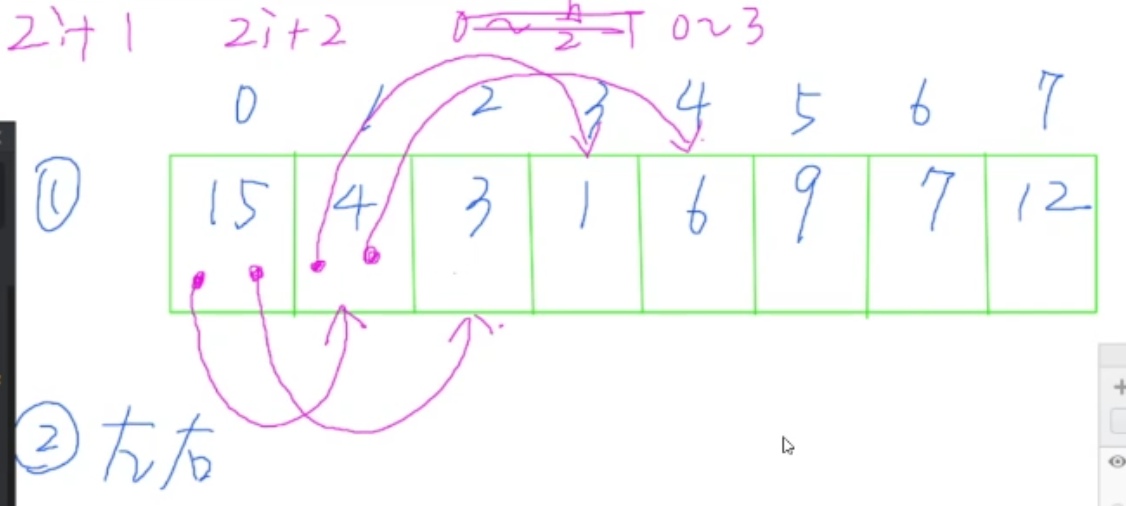 2i+1 2i+2 0~n/2-1 0~3
0 1 2 3 4 5 6 7
① 15 4 3 1 6 9 7 12
② 左右